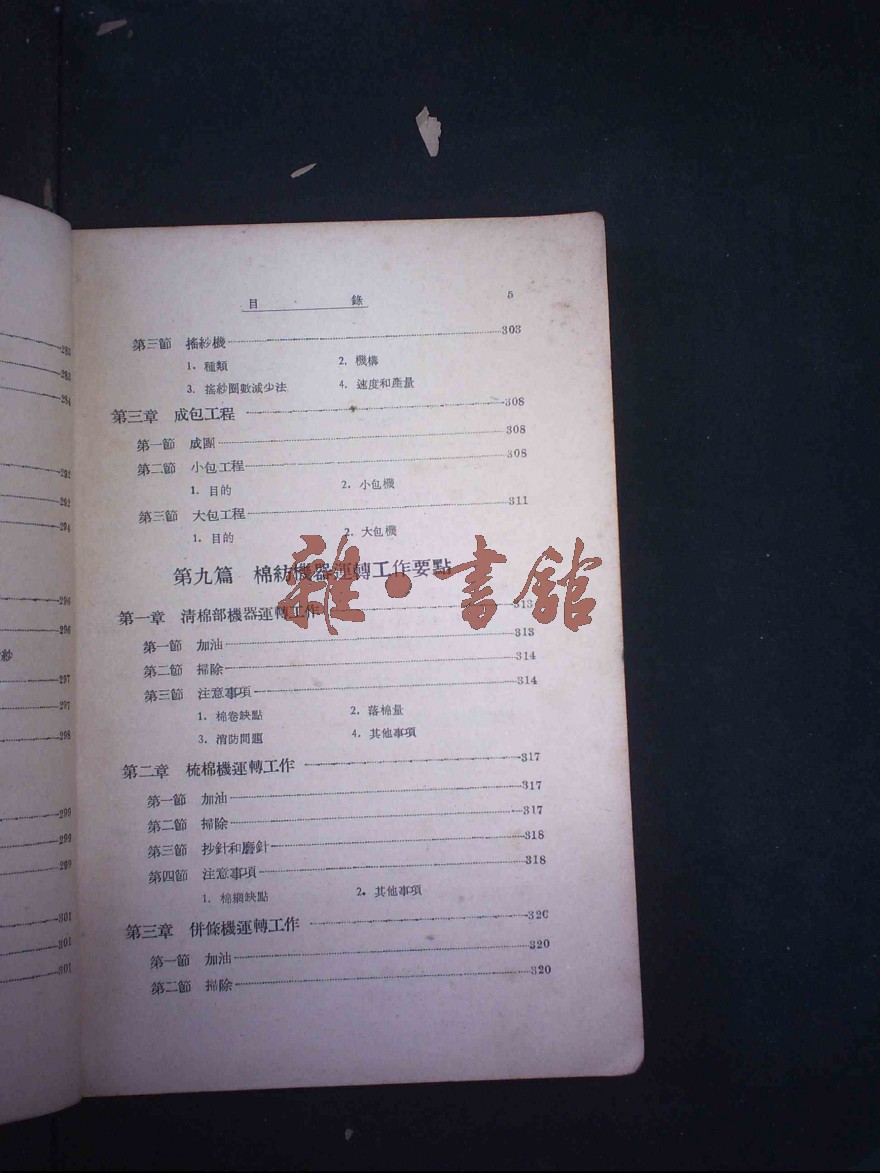 283
283
284
292
292
294
296
296
紗
297
297
298
299
299
299
301
301
301
目 錄 5
第三節 搖紗機 303
1. 種類 2. 機構
3. 搖紗圈數減少法 4. 速度和產量
第三章 成包工程 308
第一節 成團 308
第二節 小包工程 308
1. 目的 2. 小包機
第三節 大包工程 311
1. 目的 2. 大包機
第九篇 棉紡機器運轉工作要點
第一章 清棉部機器運轉工作 313
第一節 加油 313
第二節 掃除 314
第三節 注意事項 314
1. 棉卷缺點 2. 落棉量
3. 消防問題 4. 其他事項
第二章 梳棉機運轉工作 317
第一節 加油 317
第二節 掃除 317
第三節 抄針和磨針 318
第四節 注意事項 318
1. 棉網缺點 2. 其他事項
第三章 併條機運轉工作 320
第一節 加油 320
第二節 掃除 320
雜·書館